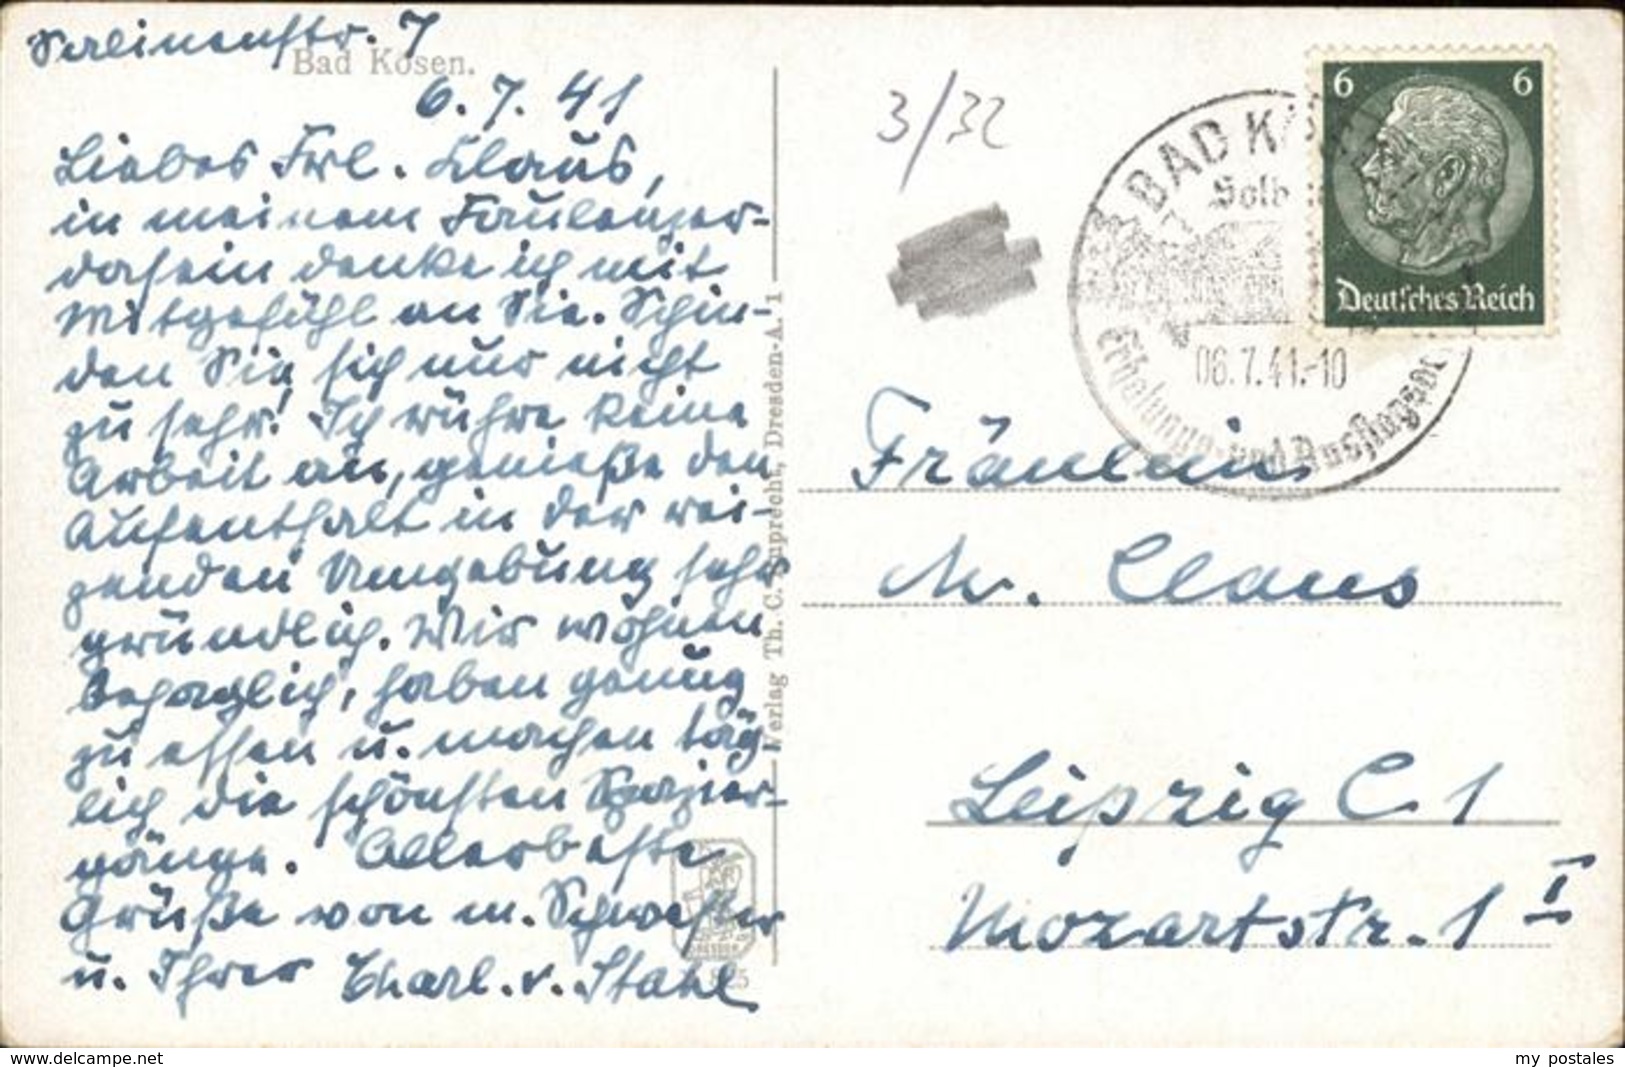 Berlinerstr. 7
Bad Kösen.
6. 7. 41
Liebes Frl. Klaus,
in meinem Faulenzer-
dasein denke ich mit
Mitgefühl an Sie. Schin-
den Sie sich nur nicht
zu sehr! Ich rühre keine
Arbeit an, genieße den
Aufenthalt in der rei-
zenden Umgebung sehr
gründlich. Wir wohnen
behaglich, haben genug
zu essen u. machen täg-
lich die schönsten Spazier-
gänge. Allerbeste
Grüße von m. Schwester
u. Ihrer Charl. v. Stahl
Verlag Th. C. Ruprecht, Dresden-A. 1
3/32
BAD KÖ
Solb
06.7.41.-10
Erholungs- und Ausflugsort
6 6
Deutsches Reich
Fräulein
M. Claus
Leipzig C 1
Mozartstr. 1 I
www.delcampe.net
my postales